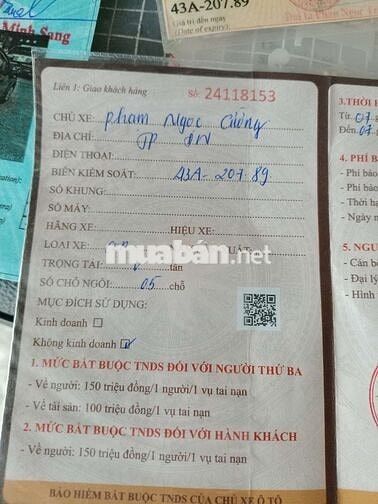 43A-207.89
Giá trị đến ngày
(Date of expiry).
Minh Sang
Liên 1: Giao khách hàng
Số: 24118153
CHỦ XE: Phạm Ngọc Cường
ĐỊA CHỈ: TP ĐN
ĐIỆN THOẠI:
BIỂN KIỂM SOÁT: 43A-207.89
SỐ KHUNG:
SỐ MÁY:
HÃNG XE: HIỆU XE:
LOẠI XE: UẤT:
TRỌNG TẢI: tấn
SỐ CHỖ NGỒI: 05 chỗ
MỤC ĐÍCH SỬ DỤNG:
Kinh doanh ☐
Không kinh doanh ☑
muabán.net
1. MỨC BẮT BUỘC TNDS ĐỐI VỚI NGƯỜI THỨ BA
- Về người: 150 triệu đồng/1 người/1 vụ tai nạn
- Về tài sản: 100 triệu đồng/1 vụ tai nạn
2. MỨC BẮT BUỘC TNDS ĐỐI VỚI HÀNH KHÁCH
- Về người: 150 triệu đồng/1 người/1 vụ tai nạn
BẢO HIỂM BẮT BUỘC TNDS CỦA CHỦ XE Ô TÔ
3. THỜI
Từ: 07
Đến: 07
4. PHÍ B
- Phí bảo
- Phí bảo
- Thời hạ
- Ngày n
5. NGƯ
- Cán b
- Đại lý
- Hình